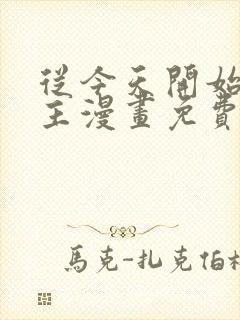 從今天開始
王漫畫免費
馬克-扎克伯格